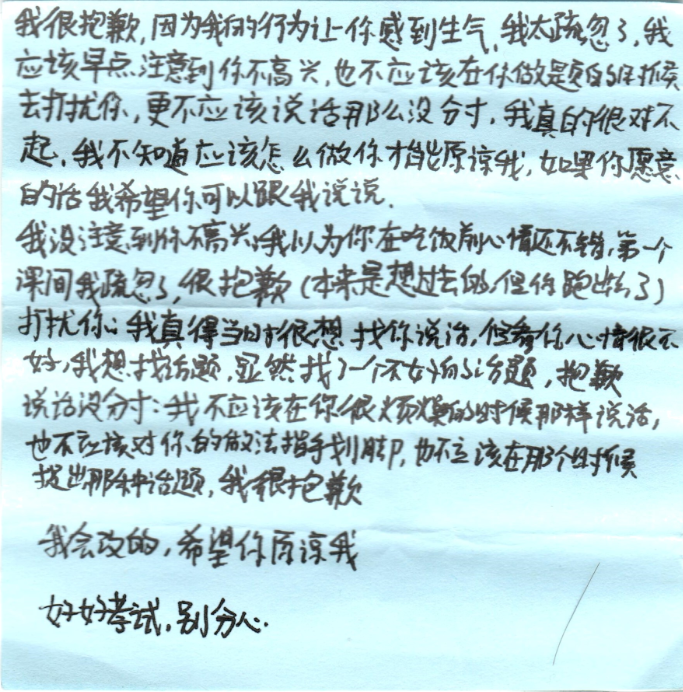 我很抱歉,因为我的行为让你感到生气,我太疏忽了,我
应该早点注意到你不高兴,也不应该在你做题的时候
去打扰你,更不应该说话那么没分寸,我真的很对不
起,我不知道应该怎么做你才能原谅我,如果你愿意
的话我希望你可以跟我说说.
我没注意到你不高兴:我以为你在吃饭前心情还不错,第一个
课间我疏忽了,很抱歉(本来是想过去的,但你跑出去了)
打扰你:我真得当时很想找你说话,但看你心情很不
好,我想找话题,显然找了一个不好的话题,抱歉
说话没分寸:我不应该在你很烦燥的时候那样说话,
也不应该对你的做法指手划脚,也不应该在那个时候
提出那种话题,我很抱歉
我会改的,希望你原谅我
好好考试,别分心.